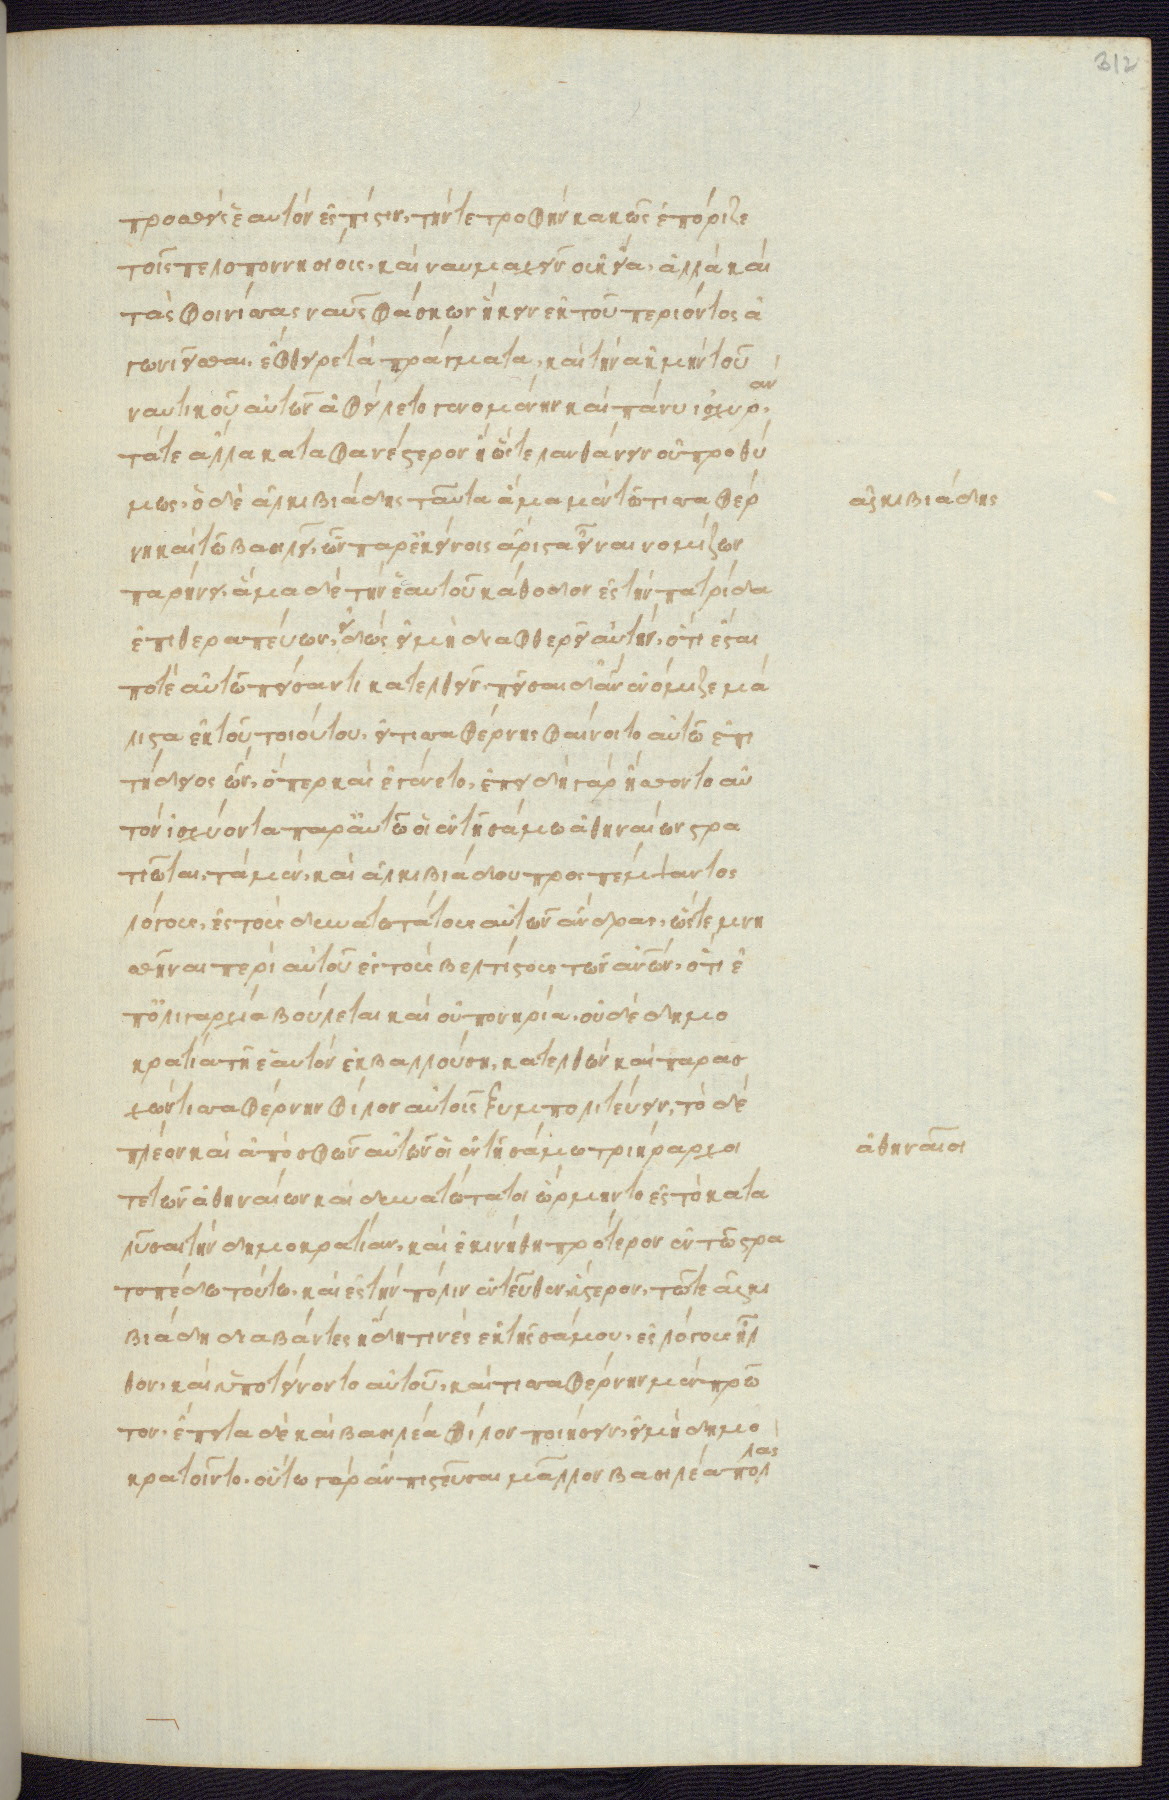 312
προσθεὶς ἑαυτὸν ἐς πίστιν. τήν τε τροφὴν κακῶς ἐπόριζε
τοῖς πελοποννησίοις. καὶ ναυμαχεῖν οὐκ εἴα. ἀλλὰ καὶ
τὰς φοινίσσας ναῦς φάσκων ἥκειν ἐκ τοῦ περιόντος ἀ
γωνιεῖσθαι. ἔφθειρε τὰ πράγματα. καὶ τὴν ἀκμὴν τοῦ
ναυτικοῦ αὐτῶν ἀφείλετο γενομένην καὶ πάνυ ἰσχυράν.
τά τε ἄλλα καταφανέστερον ἢ ὥστε λανθάνειν οὐ προθύ
μως. ὁ δὲ ἀλκιβιάδης ταῦτα ἅμα μὲν τῶ τισσαφέρ
ἀλκιβιάδης
νη καὶ τῶ βασιλεῖ. ὢν παρ' ἐκείνοις ἄριστα εἶναι νομίζων
παρήνει. ἅμα δὲ τὴν ἑαυτοῦ κάθοδον ἐς τὴν πατρίδα
ἐπιθεραπεύων. εἰδὼς εἰ μὴ διαφθερεῖ αὐτήν. ὅτι ἔσται
ποτὲ αὐτῶ πείσαντι κατελθεῖν. πεῖσαι δ' ἂν ἐνόμιζε μά
λιστα ἐκ τοῦ τοιούτου. εἰ τισσαφέρνης φαίνοιτο αὐτῶ ἐπι
τήδειος ὤν. ὅπερ καὶ ἐγένετο. ἐπειδὴ γὰρ ἤσθοντο αὐ
τὸν ἰσχύοντα παρ' αὐτῶ οἱ ἐν τῇ σάμω ἀθηναίων στρα
τιῶται. τὰ μὲν. καὶ ἀλκιβιάδου προσπέμψαντος
λόγους. ἐς τοὺς δυνατωτάτους αὐτῶν ἄνδρας. ὥστε μνη
σθῆναι περὶ αὐτοῦ ἐς τοὺς βελτίστους τῶν ἀνῶν. ὅτι ἐ
π' ὀλιγαρχία βούλεται καὶ οὐ πονηρία. οὐδὲ δημο
κρατία τῇ ἑαυτὸν ἐκβαλλούση. κατελθὼν καὶ παρασ
χὼν τισσαφέρνην φίλον αὐτοῖς ξυμπολιτεύειν. τὸ δὲ
πλέον καὶ ἀπὸ σφῶν αὐτῶν οἱ ἐν τῇ σάμω τριήραρχοι
ἀθηναῖοι
τε τῶν ἀθηναίων καὶ δυνατώτατοι ὥρμηντο ἐς τὸ κατα
λῦσαι τὴν δημοκρατίαν. καὶ ἐκινήθη πρότερον ἐν τῶ στρα
τοπέδω τούτο. καὶ ἐς τὴν πόλιν ἐντεῦθεν ὕστερον. τῶ τε ἀλκι
βιάδη διαβάντες ἤδη τινὲς ἐκ τῆς σάμου. ἐς λόγους ἦλ
θον. καὶ ὑποτείνοντο αὐτοῦ. καὶ τισσαφέρνην μὲν πρῶ
τον. ἔπειτα δὲ καὶ βασιλέα φίλον ποιήσειν. εἰ μὴ δημο
κρατοῖντο. οὕτω γὰρ ἂν πιστεῦσαι μᾶλλον βασιλέα πολλὰς